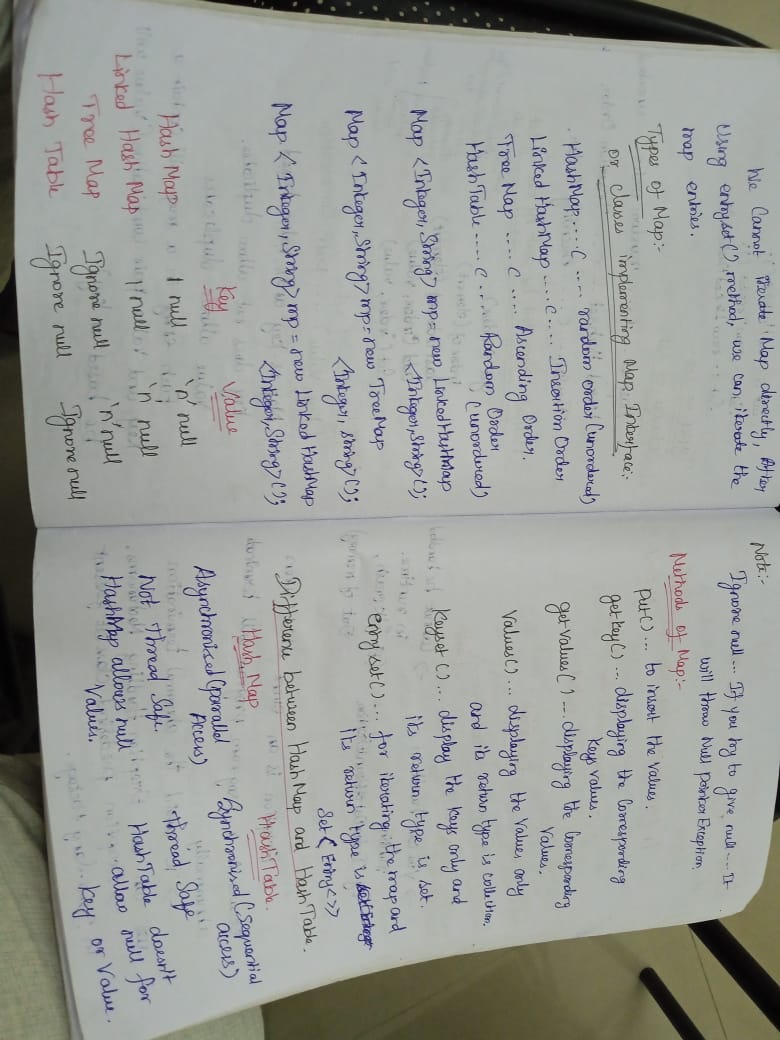 We Cannot iterate Map directly, After
Using entryset() method, we can iterate the
map entries.
Types of Map:-
or classes implementing Map Interface:-
HashMap....C .... random order (unordered)
Linked HashMap ....C.... Insertion Order
Tree Map ....C .... Ascending Order.
HashTable ....C.... Random Order
(unordered)
Map <Integer, String> mp = new LinkedHashMap
<Integer, String>();
Map < Integer, String> mp = new TreeMap
<Integer, String>();
Map < Integer, String> mp = new Linked HashMap
<Integer, String>();
Key Value
Hash Map 1 null 'n' null
Linked Hash Map 1 null 'n' null
Tree Map Ignore null 'n' null
Hash Table Ignore null Ignore null
Note:-
Ignore null... If you try to give null.... It
will throw Null pointer Exception.
Methods of Map:-
Put()... to insert the values.
getkey() ... displaying the Corresponding
Keys values.
getvalues() ... displaying the Corresponding
Values.
Values()... displaying the Values only
and its return type is collection.
Keyset ()... display the keys only and
its return type is set.
entry set()... for iterating the map and
its return type is
Set < Entry<>>
Difference between HashMap and HashTable.
Hash Map HashTable.
Asynchronised (parallel Access) Synchronised (Sequential access)
Not Thread Safe. Thread Safe
HashMap allows null Values. HashTable doesn't allow null for key or Value.